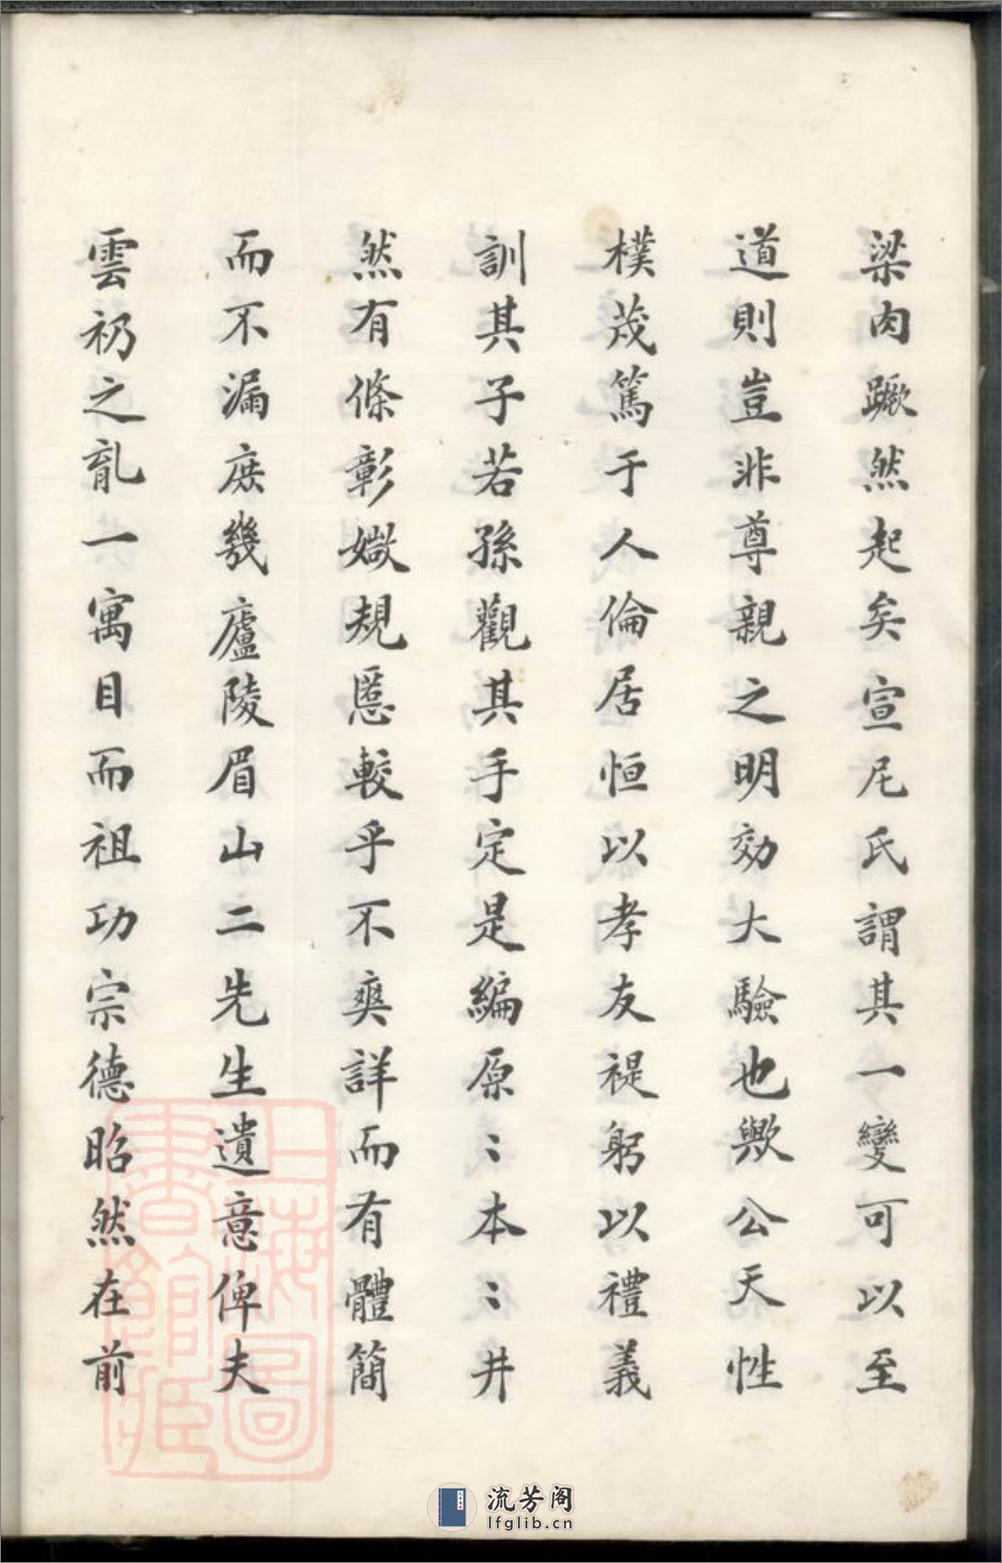 梁肉蹶然起矣宣尼氏謂其一變可以至
道則豈非尊親之明効大驗也歟公天性
樸茂篤于人倫居恒以孝友禔躬以禮義
訓其子若孫觀其手定是編原〻本〻井
然有條彰媺規慝較乎不爽詳而有體簡
而不漏庶幾廬陵眉山二先生遺意俾夫
雲礽之亂一寓目而祖功宗德昭然在前
上海圖書館藏
流芳阁
lfglib.cn